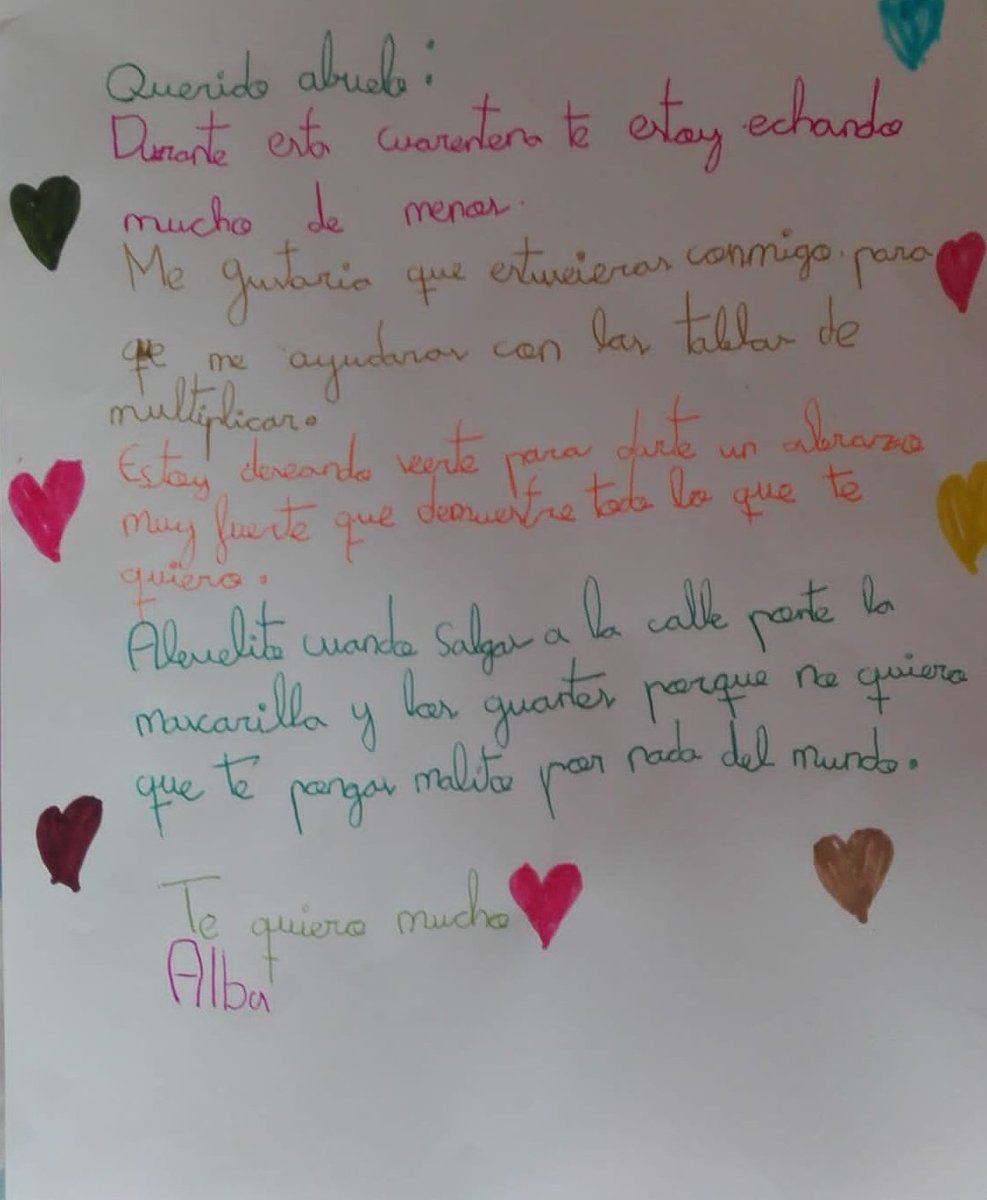 Querido abuelo:
Durante esta cuarentena te estoy echando
mucho de menos.
Me gustaria que estuvieras conmigo para
que me ayudaras con las tablas de
multiplicar.
Estoy deseando verte para darte un abrazo
muy fuerte que demuestre todo lo que te
quiero.
Abuelito cuando salgas a la calle ponte la
mascarilla y los guantes porque no quiero
que te pongas malito por nada del mundo.
Te quiero mucho
Alba